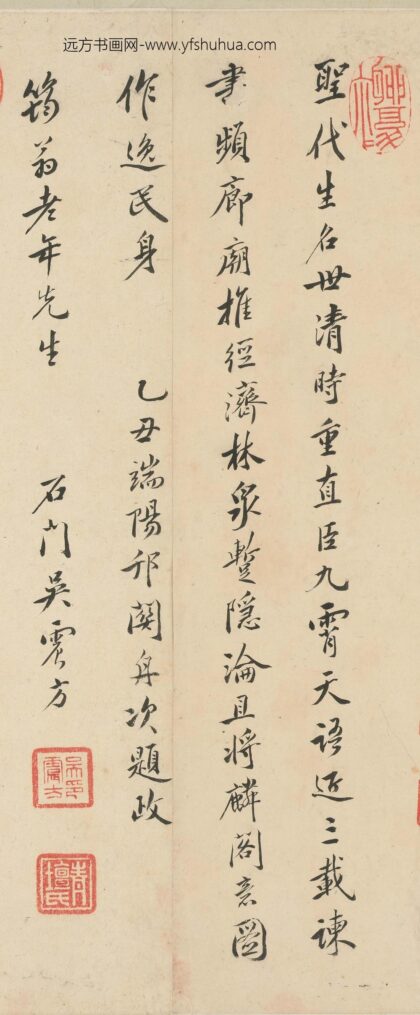 远方书画网-www.yfshuhua.com
聖代生名世清時重直臣九霄天語近三載諫
書頻廊廟推經濟林泉暫隱淪且將麟閣意圖
作逸民身 乙丑端陽邗關舟次題政
筠翁老年先生 石門吳震方
吳印震方
青壇氏